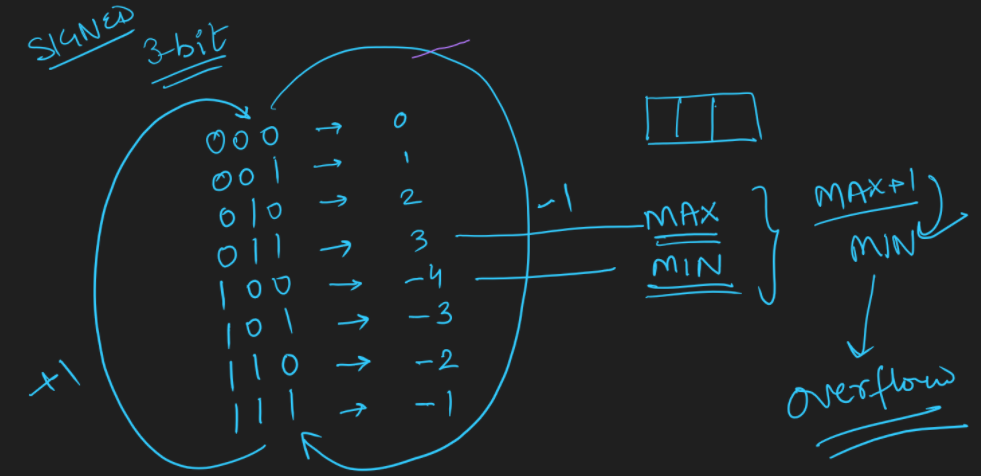 SIGNED
3-bit
000 → 0
001 → 1
010 → 2
011 → 3
100 → -4
101 → -3
110 → -2
111 → -1
+1
-1
MAX
MIN
MAX+1
MIN
overflow